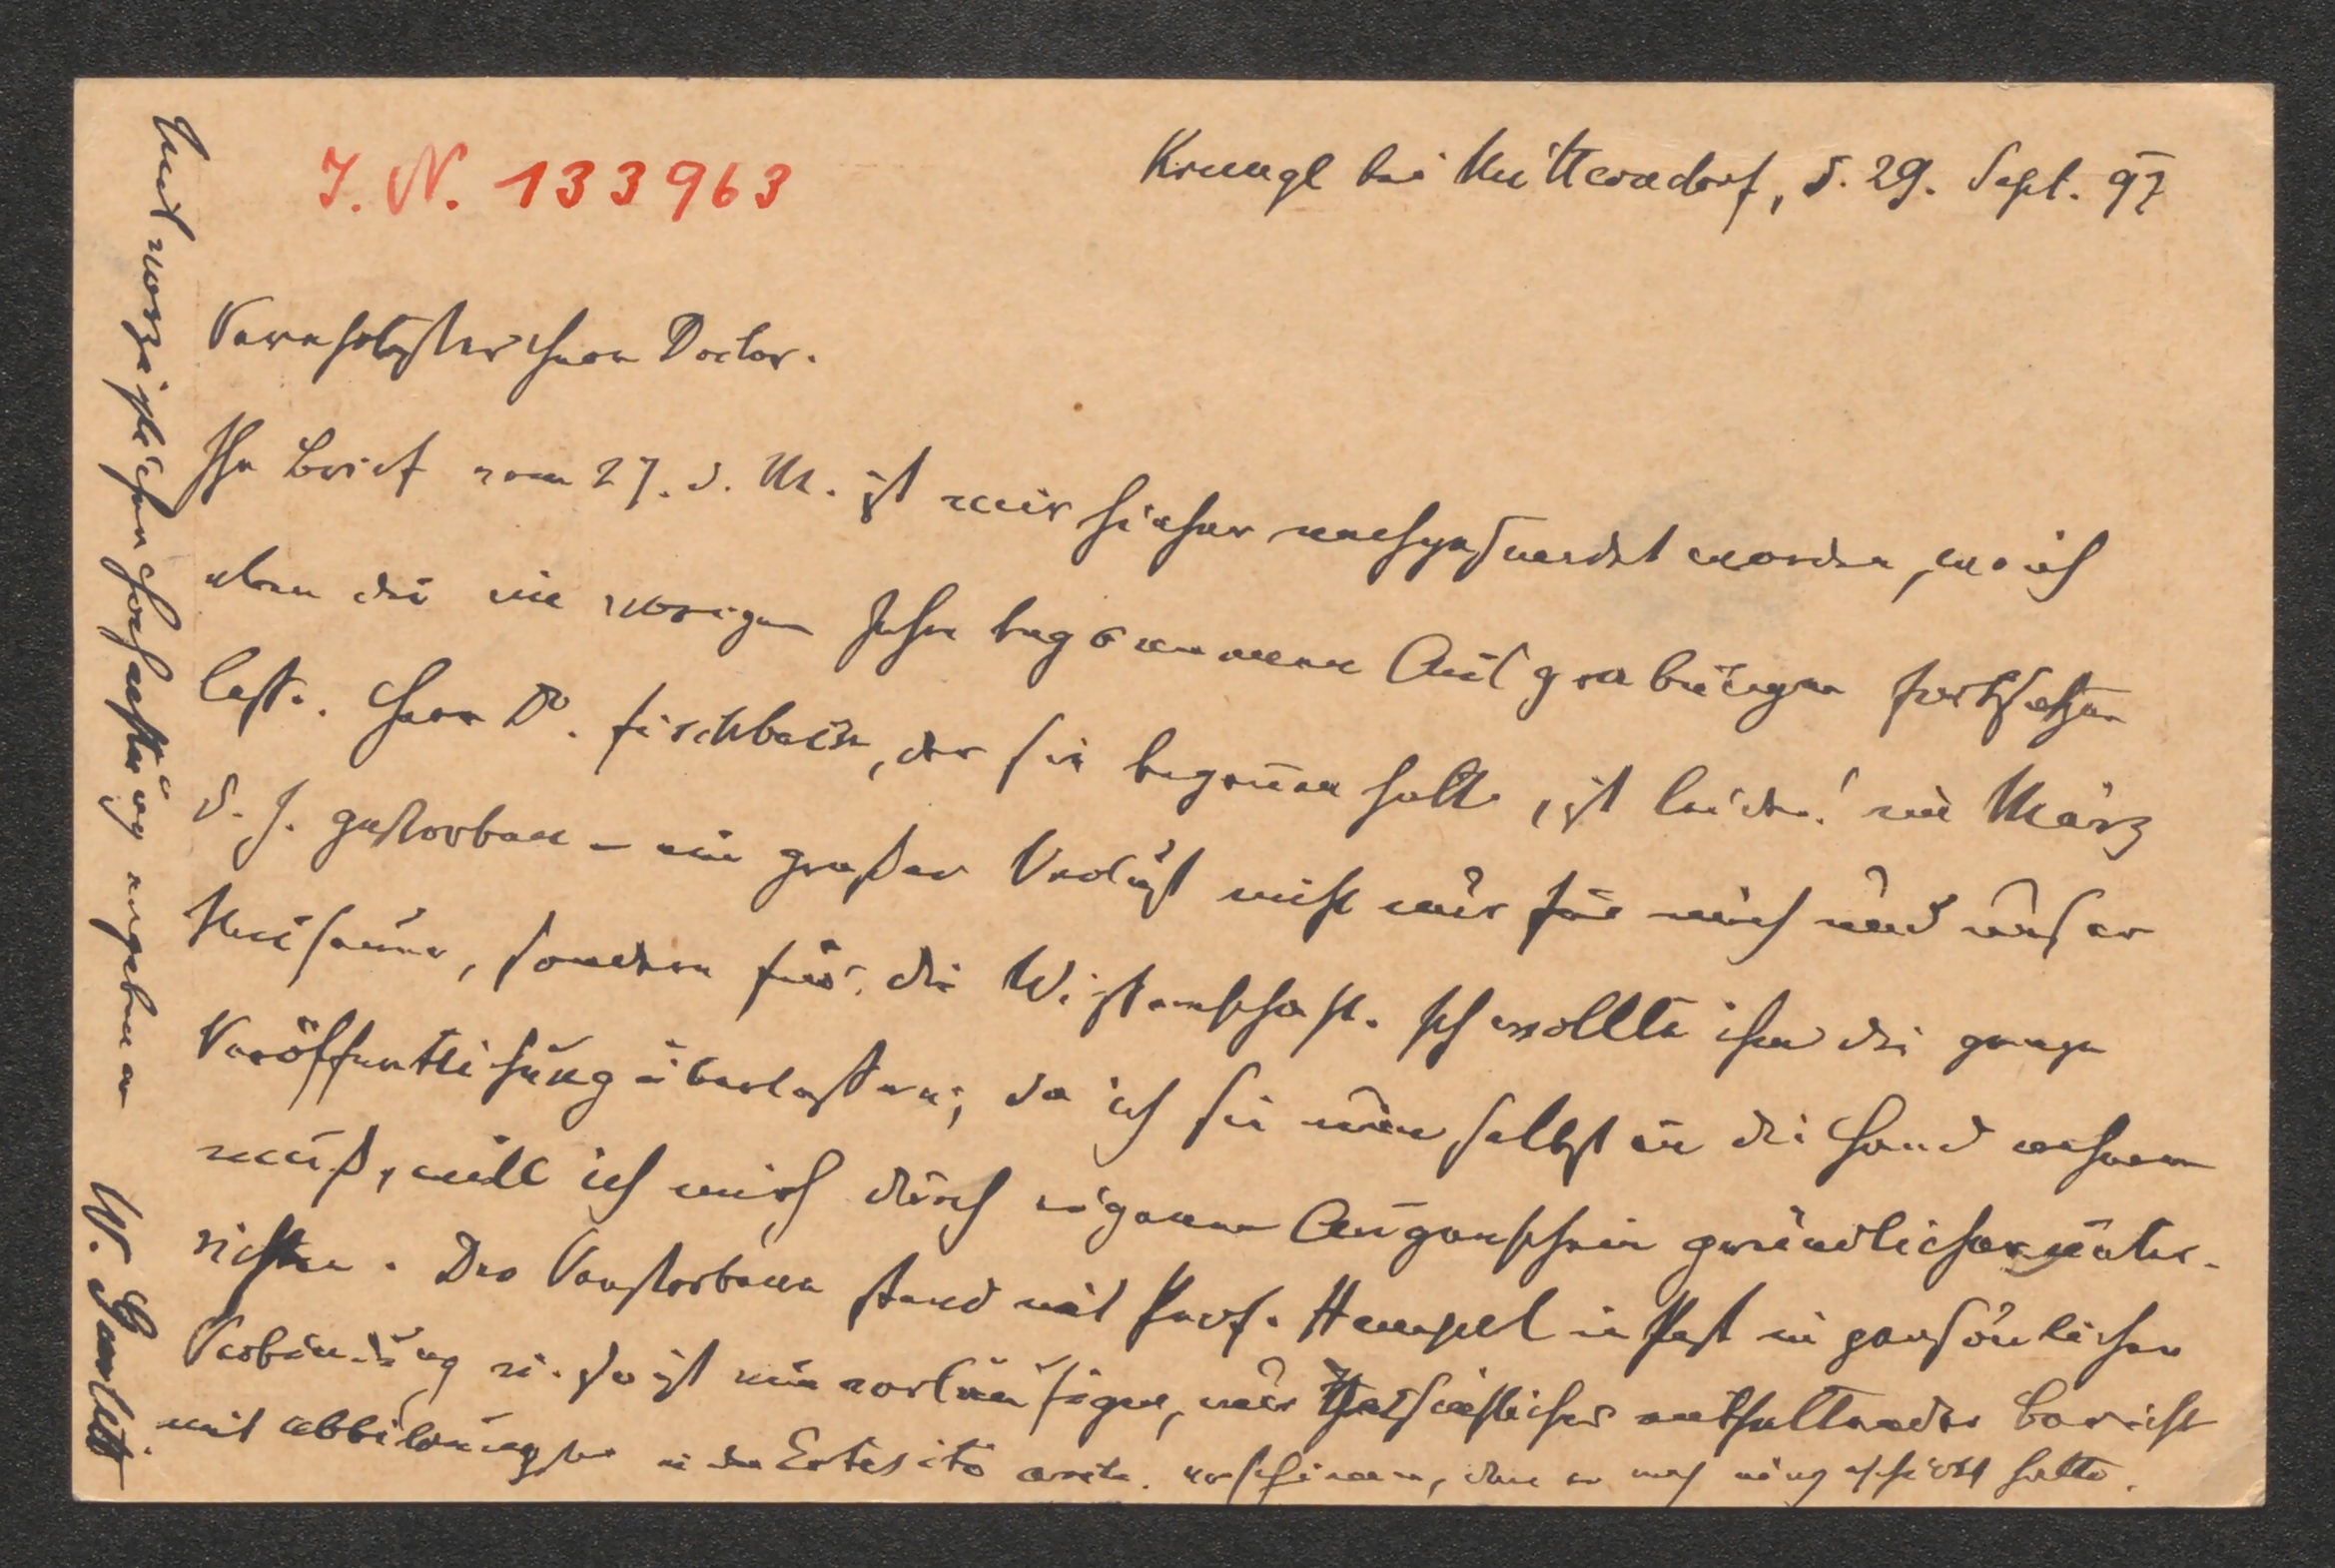 J. N. 133963
Krungl bei Mitterndorf, d. 29. Sept. 97
Verehrtester Herr Doctor.
Ihr Brief vom 27. d. M. ist mir hieher nachgesendet worden, wo ich
eben die im vorigen Jahre begonnenen Ausgrabungen fortsetzen
lasse. Herr Dr. Fischbach, der sie begonnen hatte, ist leider! im März
d. J. gestorben – ein großer Verlust nicht nur für mich und unser
Museum, sondern für die Wissenschaft. Ich wollte ihm die ganze
Veröffentlichung überlassen; da ich sie nun selbst in die Hand nehmen
muß, will ich mich durch eigenen Augenschein gründlicher unter-
richten. Der Verstorbene stand mit Prof. Hampel in Pest in persönlicher
Verbindung u. so ist ein vorläufiger, nur Thatsächliches enthaltender Bericht
mit Abbildungen in den Ertesitö arch. erschienen, den er noch eingeschickt hatte.
Mit vorzüglicher Hochachtung ergebener
W. Gurlitt